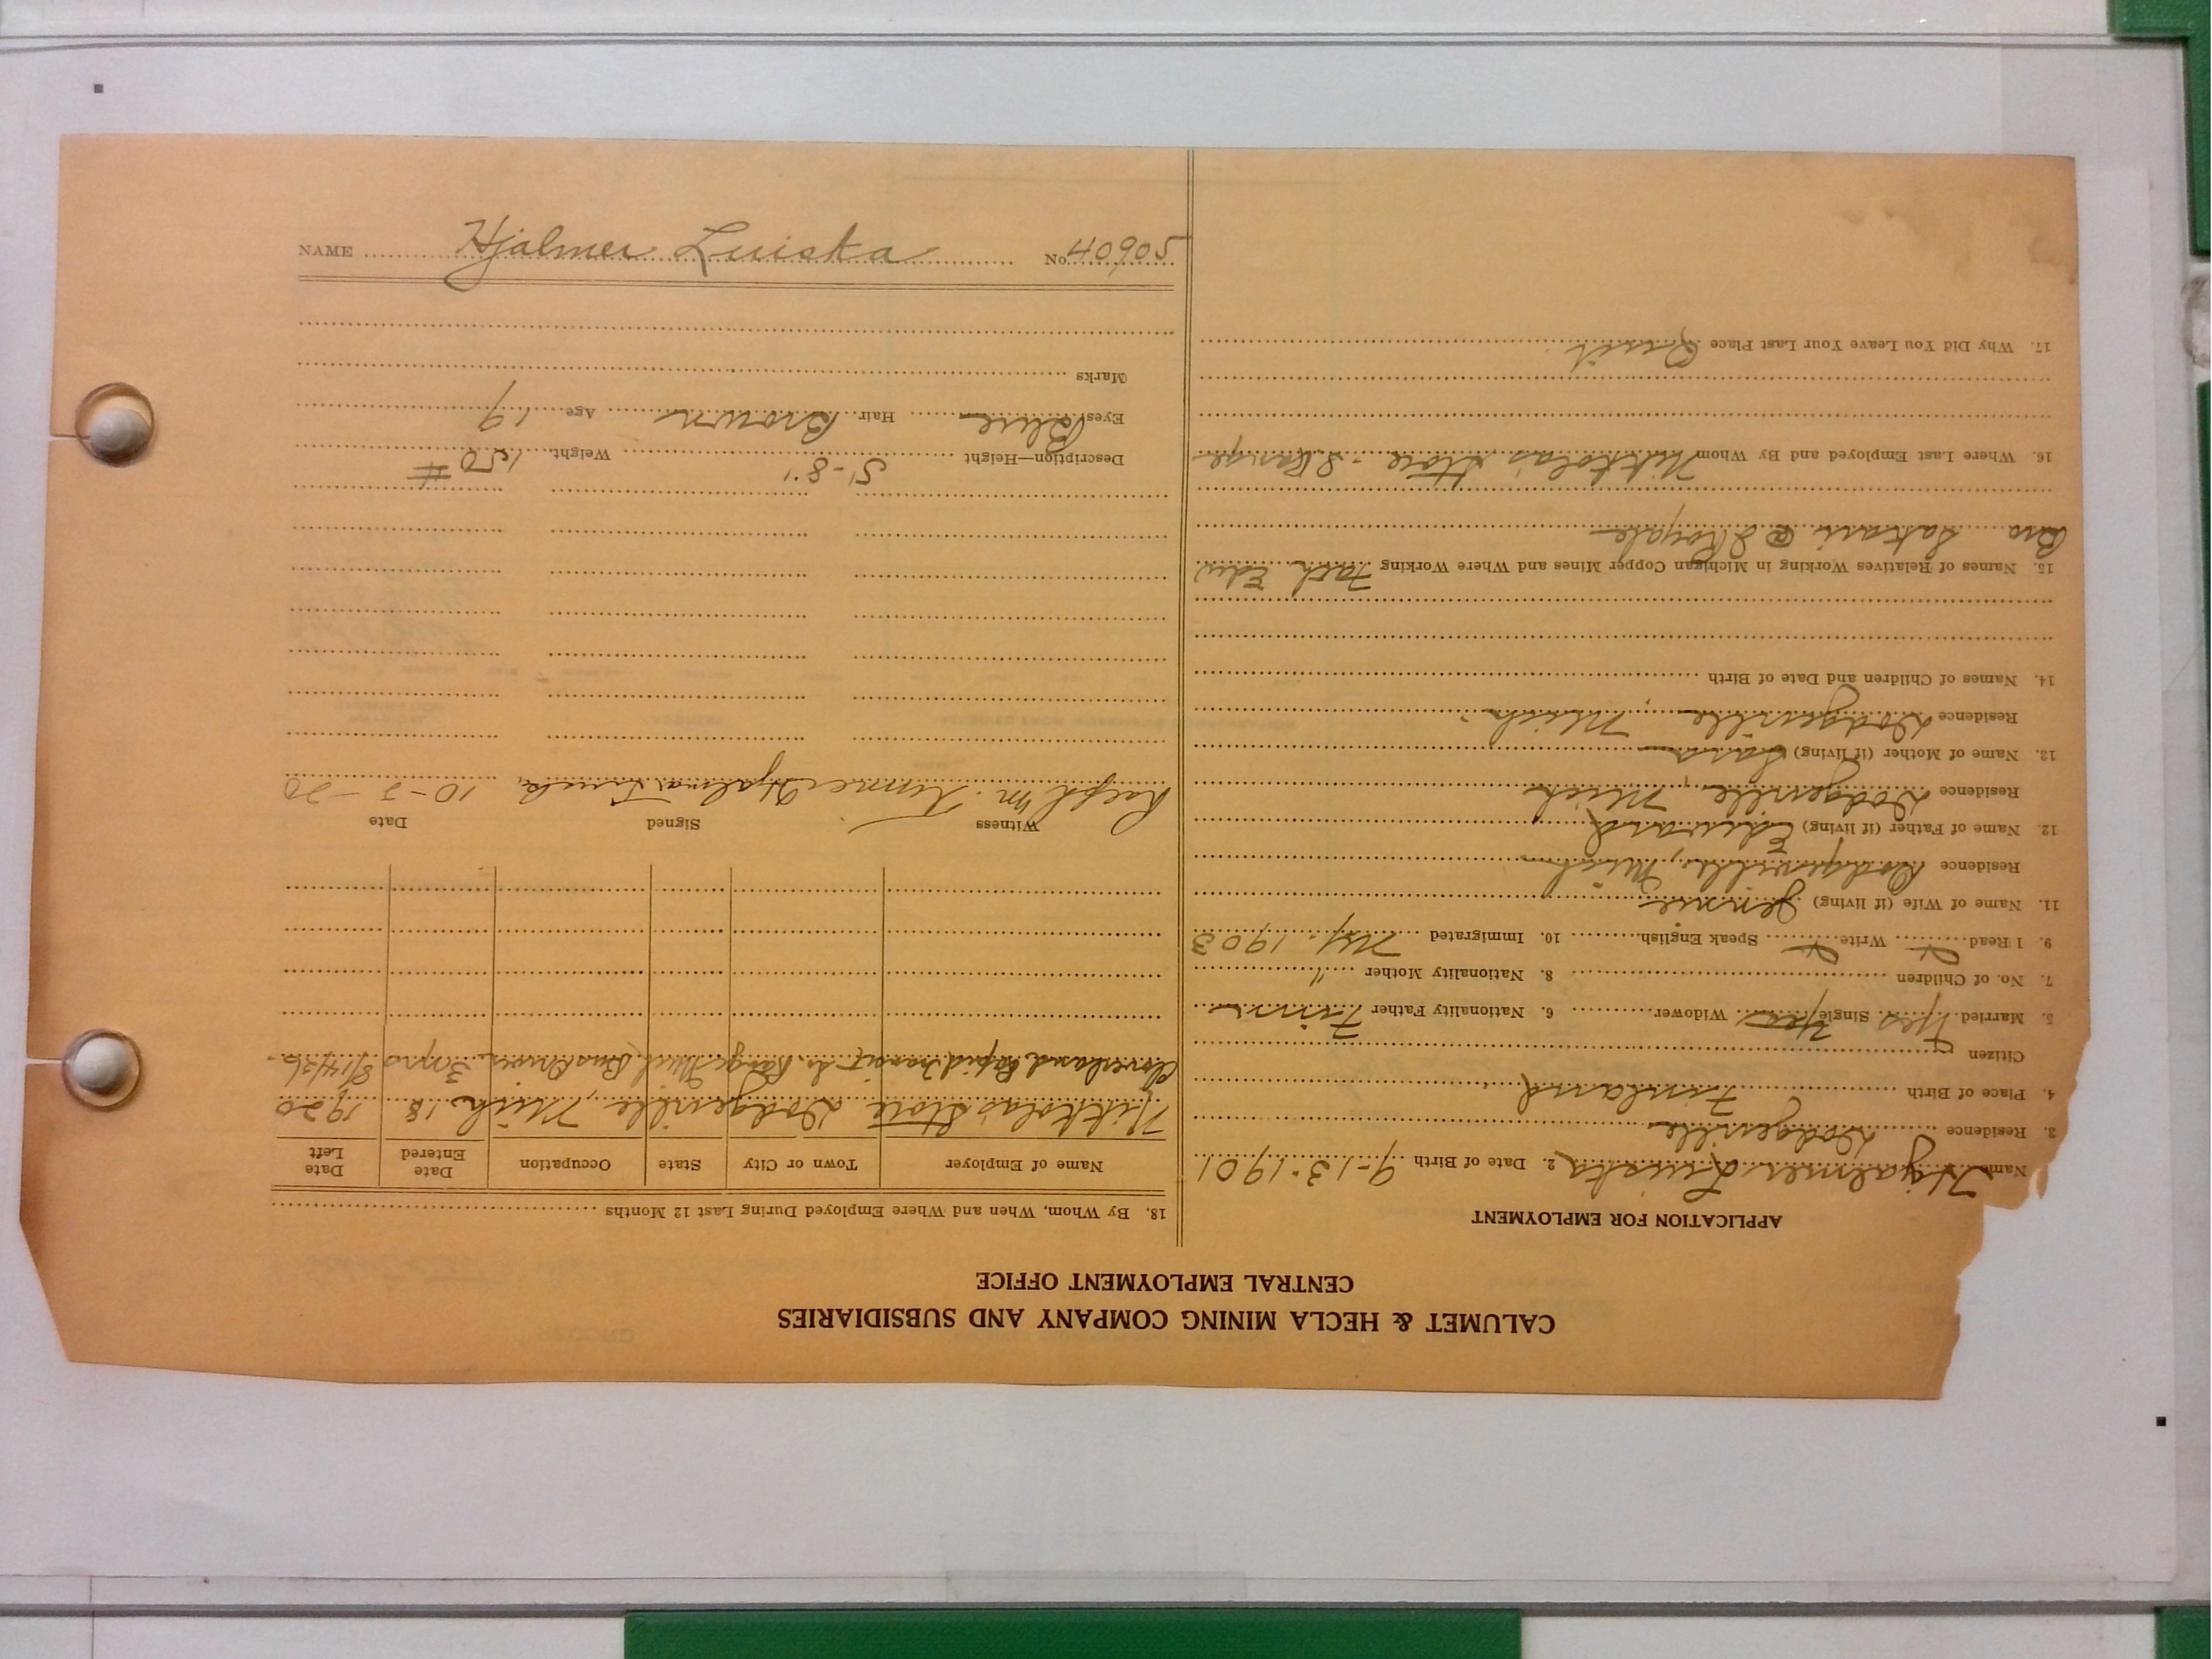 NAME Hjalmer Luiska No. 40905
CALUMET & HECLA MINING COMPANY AND SUBSIDIARIES
CENTRAL EMPLOYMENT OFFICE
APPLICATION FOR EMPLOYMENT
Name Hjalmer Luiska 2. Date of Birth 9-13-1901
3. Residence Dodgeville
4. Place of Birth Finland
Citizen
5. Married Yes Single Yes Widower 6. Nationality Father Finn
7. No. of Children 8. Nationality Mother "
9. I Read Write Speak English 10. Immigrated NY. 1903
11. Name of Wife (if living) Jennie
Residence Dodgeville, Mich
12. Name of Father (if living) Edward
Residence Dodgeville, Mich
13. Name of Mother (if living) Sara
Residence Dodgeville, Mich.
14. Names of Children and Date of Birth
15. Names of Relatives Working in Michigan Copper Mines and Where Working Fath Edw
Bro Sakari @ I Royale
16. Where Last Employed and By Whom Nikkola's Store - S. Range
17. Why Did You Leave Your Last Place Quit
18. By Whom, When and Where Employed During Last 12 Months
Name of Employer Town or City State Occupation Date Entered Date Left
Nikkola's Store Dodgeville, Mich. 18 1920
Cloverland Rapid Transit So. Range Mich Bus Driver 3 mos 8/14/26
Witness Signed Date
Ralph M. Hjalmar 10-2-20
Description—Height 5'-8" Weight 150 #
Eyes Blue Hair Brown Age 19
Marks